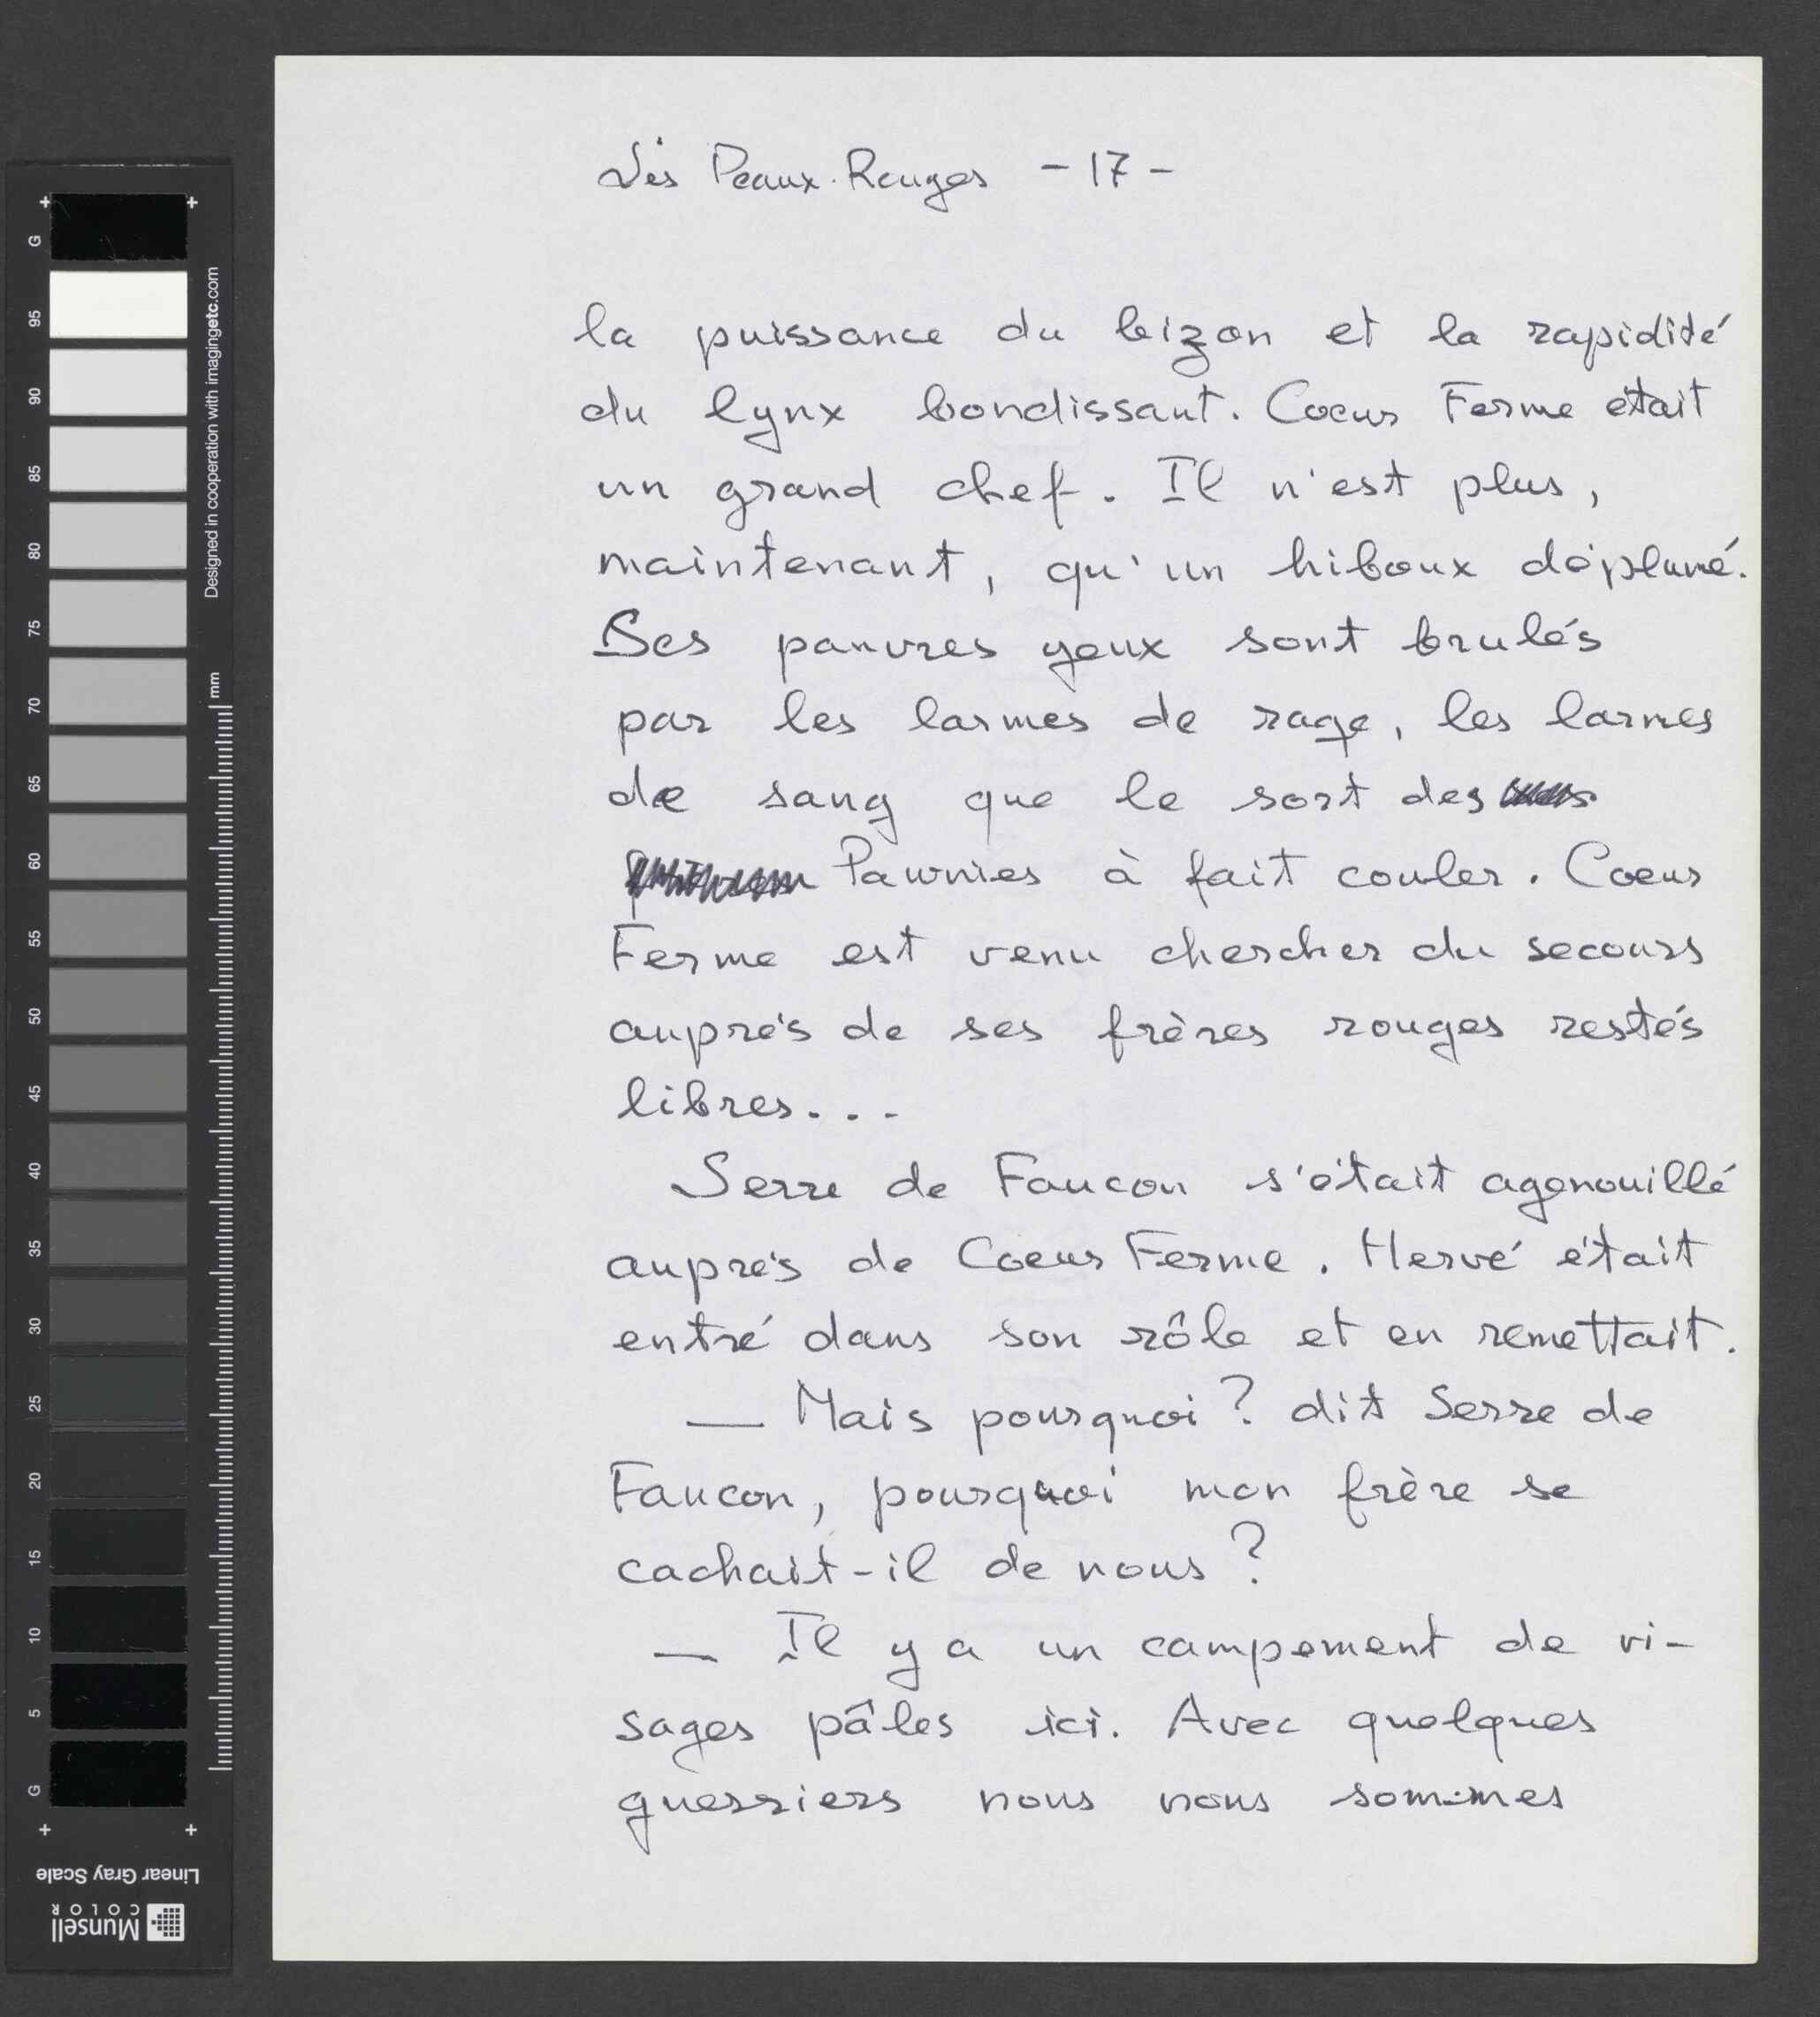 Les Peaux-Rouges - 17 -
la puissance du bizon et la rapidité
du lynx bondissant. Coeur Ferme était
un grand chef. Il n'est plus,
maintenant, qu'un hiboux déplumé.
Ses pauvres yeux sont brulés
par les larmes de rage, les larmes
de sang que le sort des
Pawnies à fait couler. Coeur
Ferme est venu chercher du secours
auprés de ses frères rouges restés
libres...
Serre de Faucon s'était agenouillé
auprés de Coeur Ferme. Hervé était
entré dans son rôle et en remettait.
— Mais pourquoi? dit Serre de
Faucon, pourquoi mon frère se
cachait-il de nous?
— Il y a un campement de vi-
sages pâles ici. Avec quelques
guerriers nous nous sommes
G 95 90 85 80 75 70 65 60 55 50 45 40 35 30 25 20 15 10 5 G
Designed in cooperation with imagingetc.com
mm
Linear Gray Scale
Munsell
COLOR